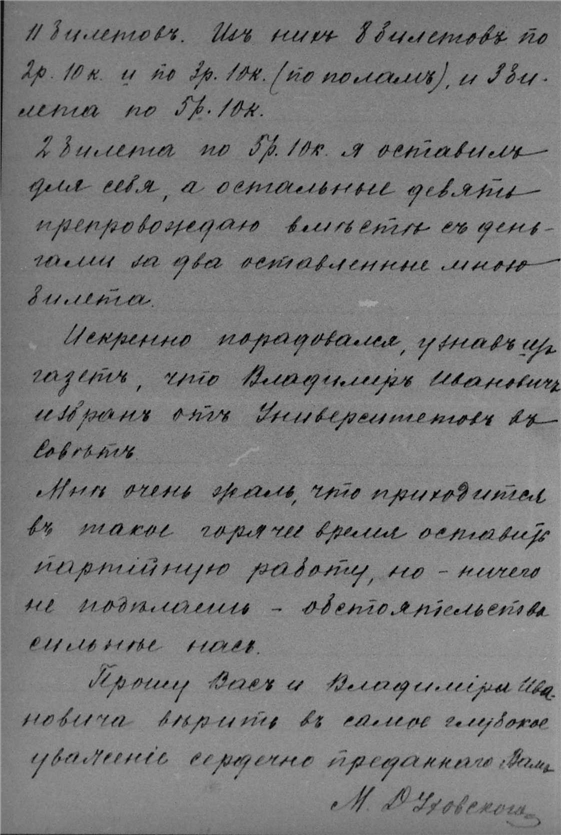 11 билетовъ. Изъ нихъ 8 билетовъ по
2р. 10к. и по 3р. 10к. (по поламъ), и 3 би-
лета по 5р. 10к.
2 билета по 5р. 10к. я оставилъ
для себя, а остальные девять
препровождаю вмѣстѣ съ день-
гами за два оставленные мною
билета.
Искренно порадовался, узнавъ изъ
газетъ, что Владиміръ Ивановичъ
избранъ отъ Университетовъ въ
Совѣтъ.
Мнѣ очень жаль, что приходится
въ такое горячее время оставить
партійную работу, но – ничего
не подѣлаешь – обстоятельства
сильнѣе насъ.
Прошу Васъ и Владиміра Ива-
новича вѣрить въ самое глубокое
уваженіе сердечно преданнаго Вамъ
М. Духовского